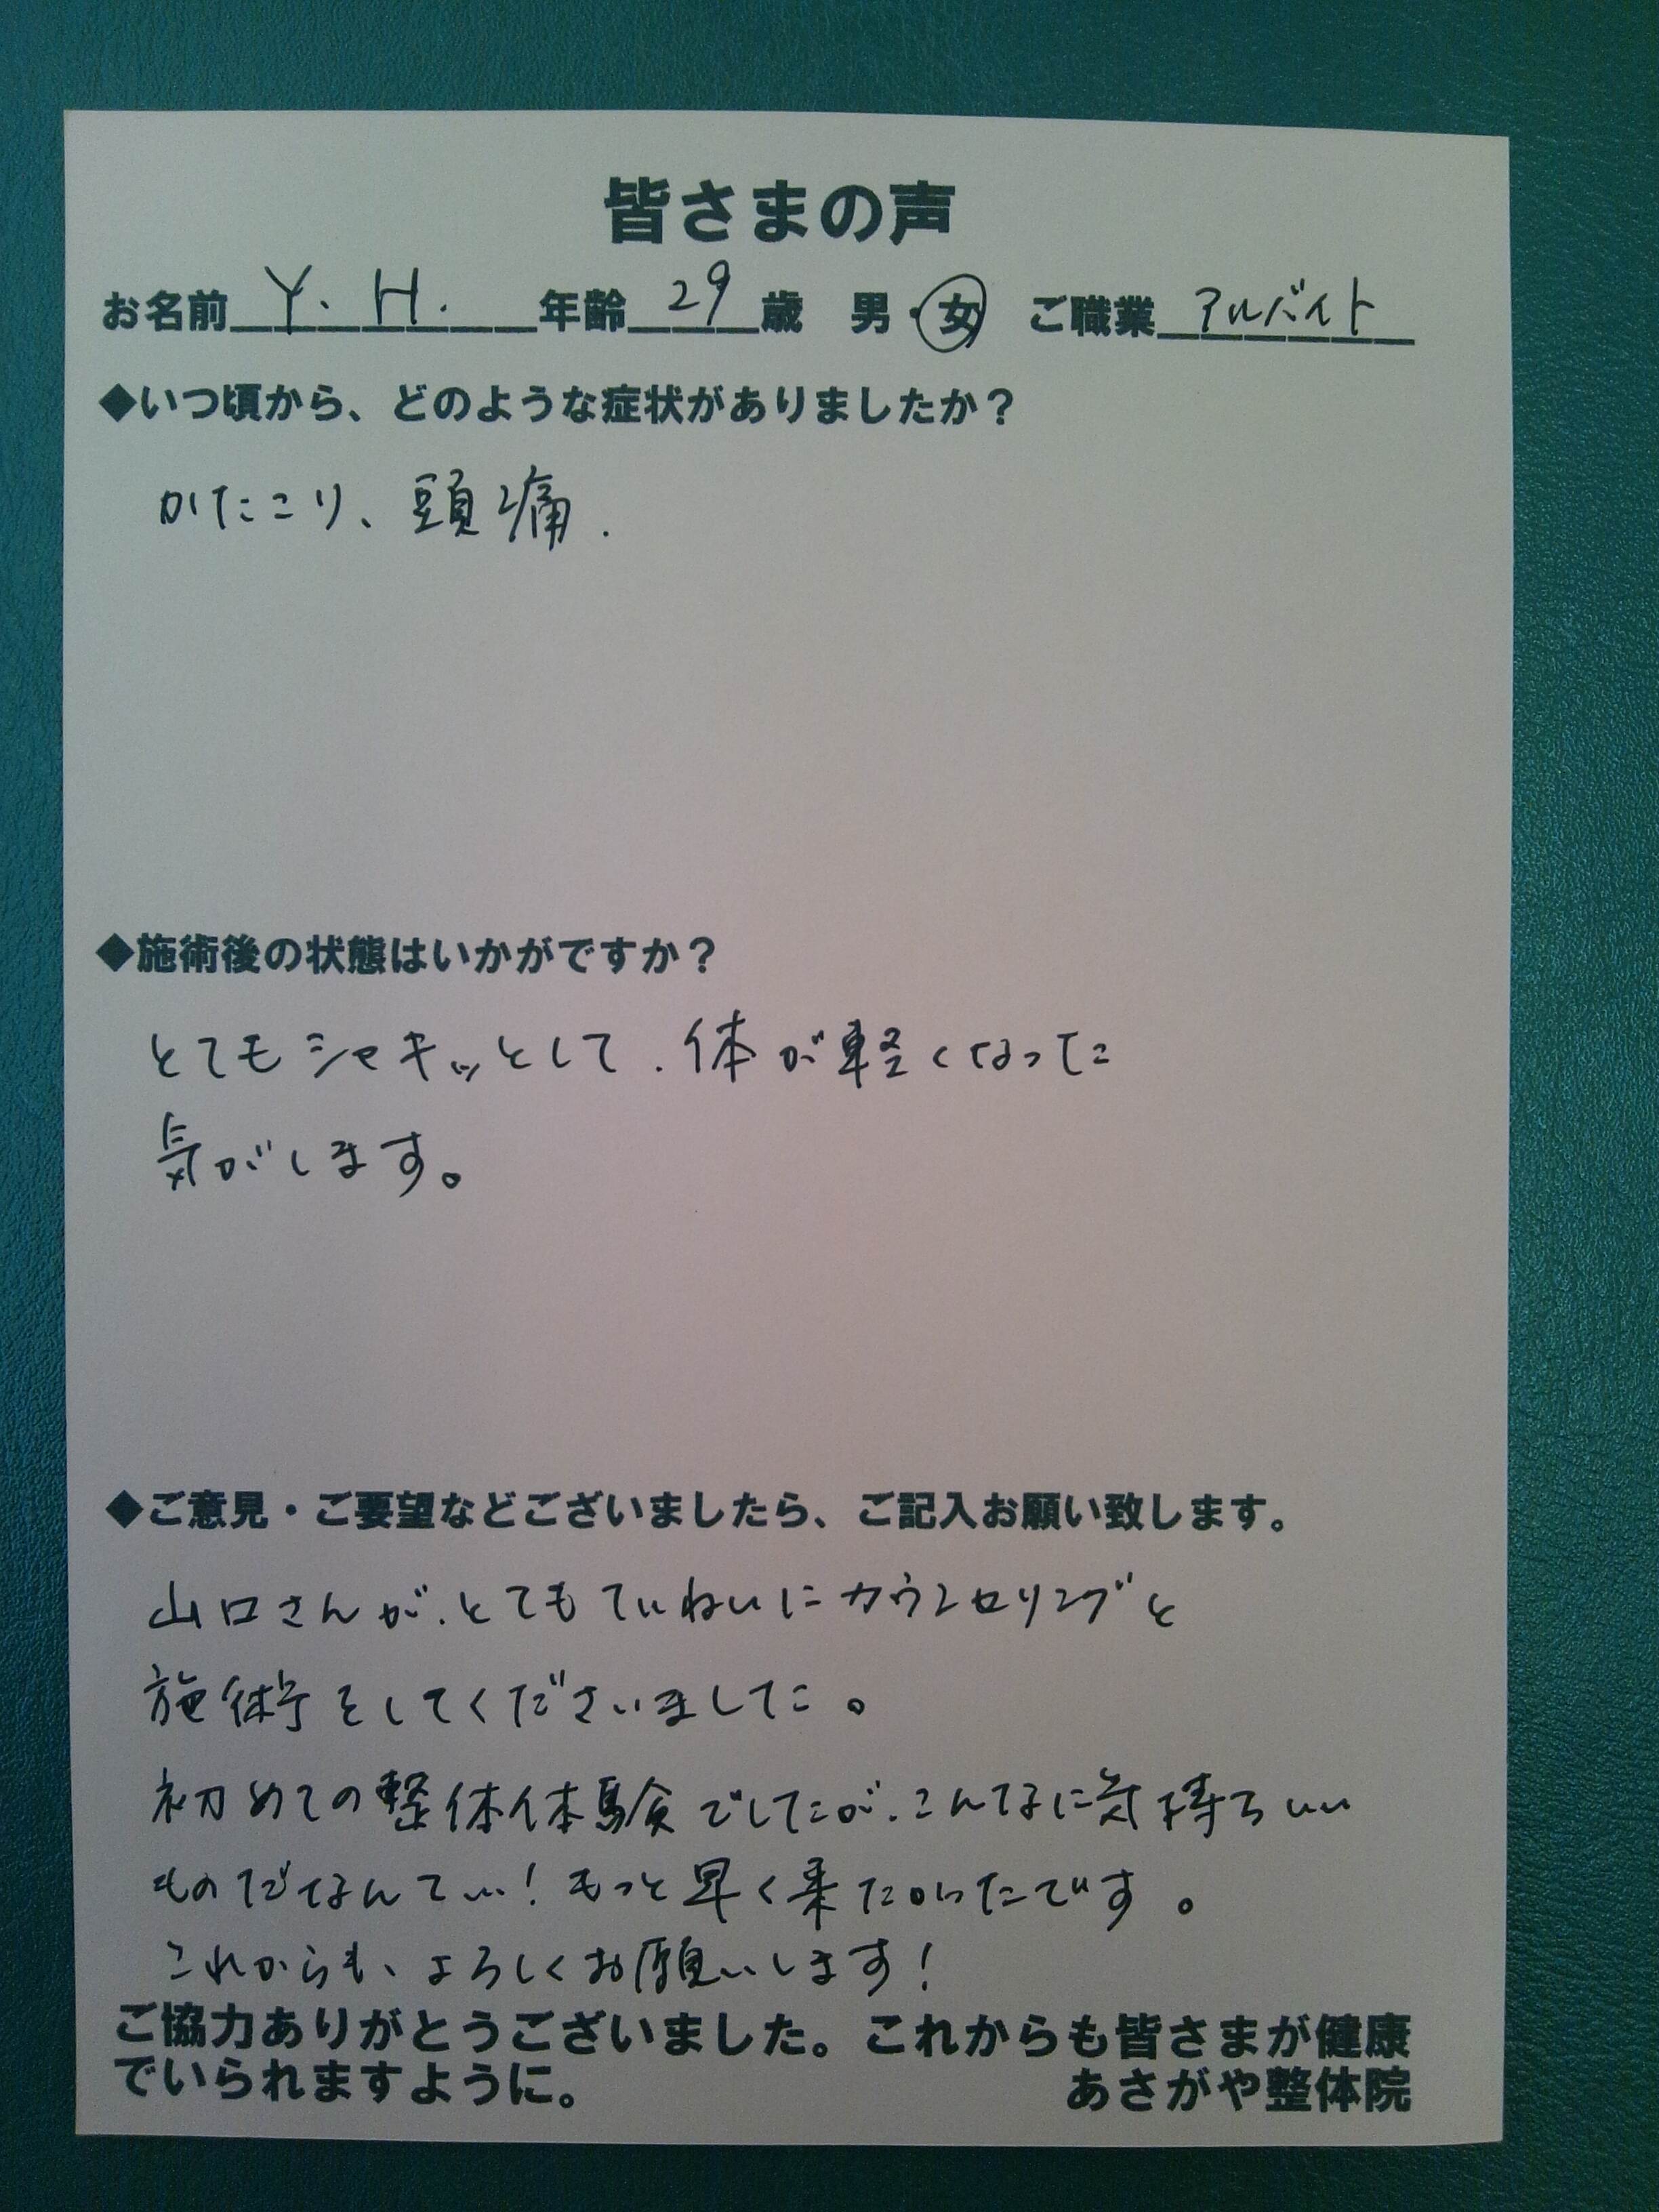 皆さまの声
お名前 Y. H. 年齢 29 歳 男・女 ご職業 アルバイト
◆いつ頃から、どのような症状がありましたか？
かたこり、頭痛.
◆施術後の状態はいかがですか？
とてもシャキッとして、体が軽くなった
気がします。
◆ご意見・ご要望などございましたら、ご記入お願い致します。
山口さんが、とてもていねいにカウンセリングと
施術をしてくださいました。
初めての整体体験でしたが、こんなに気持ちいい
ものだなんて…！もっと早く来たかったです。
これからも、よろしくお願いします！
ご協力ありがとうございました。これからも皆さまが健康
でいられますように。 あさがや整体院